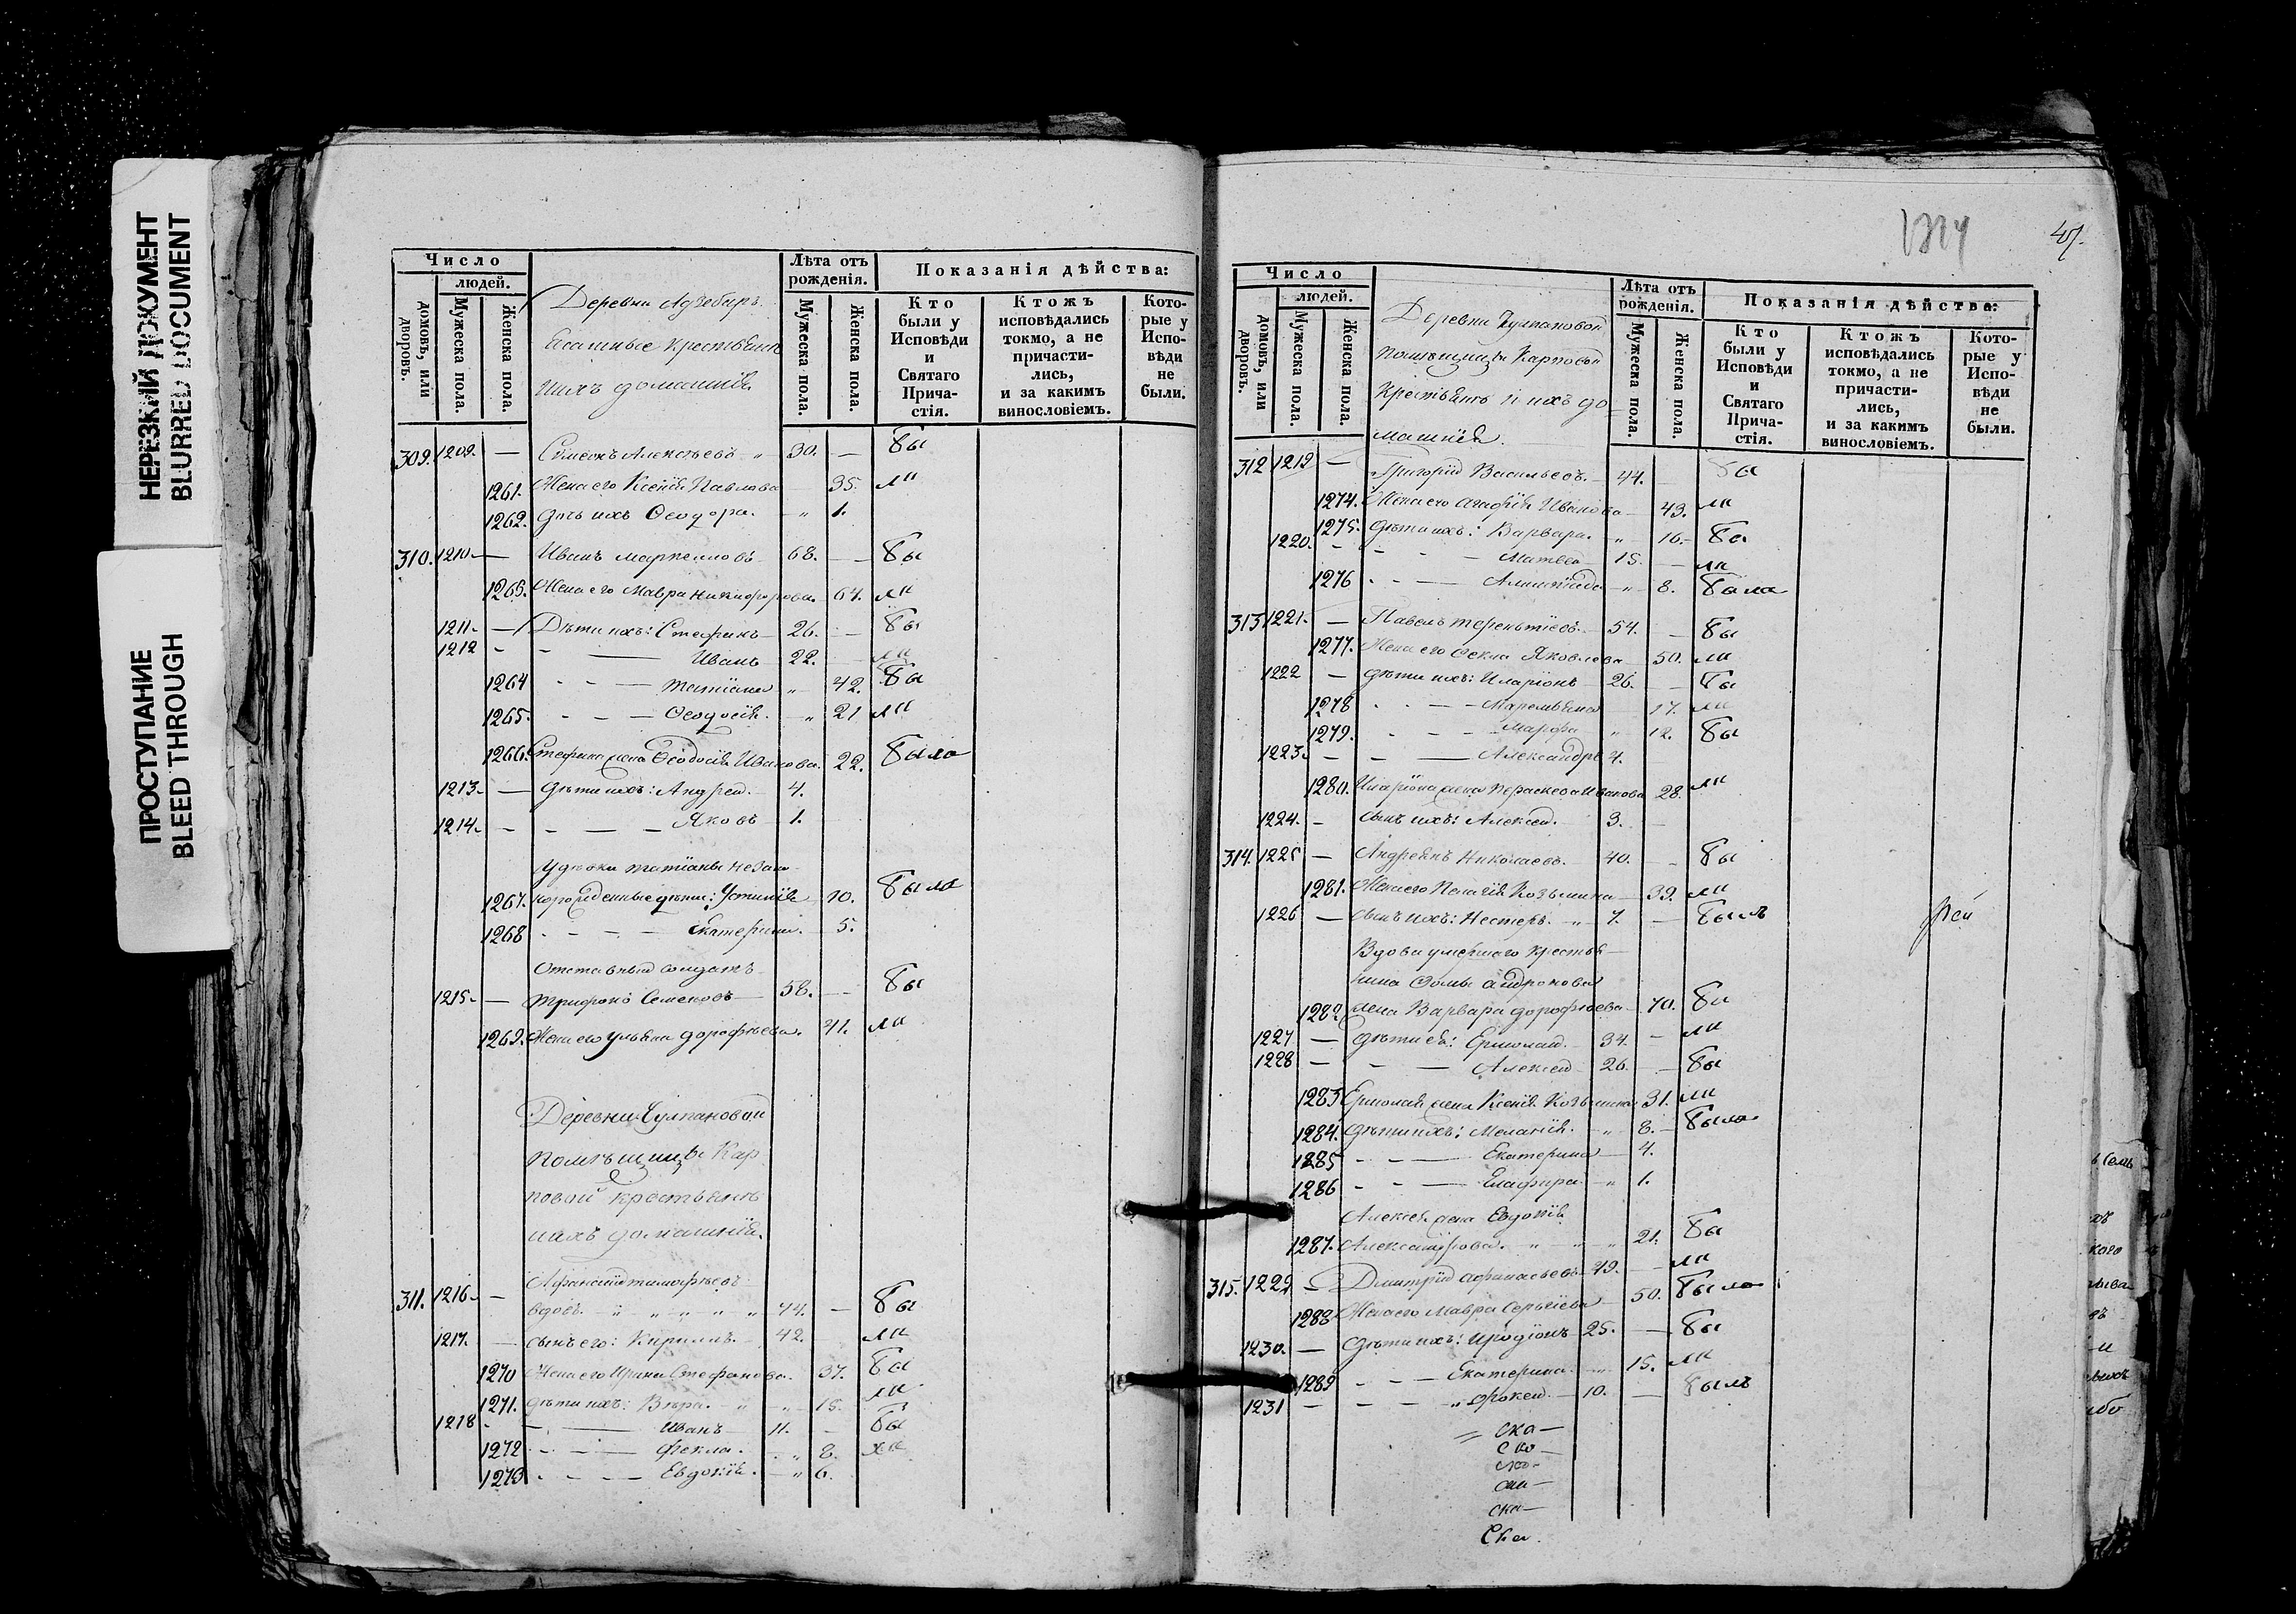 НЕРЕЗКИЙ ДОКУМЕНТ
BLURRED DOCUMENT
ПРОСТУПАНИЕ
BLEED THROUGH
Число
людей.
домовъ, или дворовъ.
Мужеска пола.
Женска пола.
Деревни
крестьяне
ихъ домашнія
Лѣта отъ рожденія.
Мужеска пола.
Женска пола.
Показанія дѣйства:
Кто были у Исповѣди и Святаго Прича-стія.
Ктожъ исповѣдались токмо, а не причасти-лись, и за какимъ винословіемъ.
Кото-рые у Испо-вѣди не были.
309. 1209. — Симеонъ Алексѣевъ 30. — бы
1261. Жена его Ксенія Павлова 35. ли
1262. дочь ихъ Ѳеодора. 1.
310. 1210. — Иванъ Маркелловъ 68. — бы
1263. Жена его Мавра Никифорова 64. ли
1211. — Дѣти ихъ: Стефанъ 26. — бы
1212 - — Иванъ 22. — ли
1264 - - — Татіана „ 42. бы
1265. - - — Ѳеодосія. „ 21 ли
1266. Стефана жена Ѳеодосія Иванова. 22. была
1213. — дѣти ихъ: Андрей. 4.
1214. - - — Яковъ 1.
У дѣвки Татіаны незако
1267. корожденные дѣти: Устинія 10. была
1268 - - — Екатерина. 5.
Отставный солдатъ
1215. — Трифонъ Семеновъ 58. — бы
1269. Жена его Ульяна Дорофѣева. 41. ли
Деревни Чулпановой
помѣщицы Кар
повой крестьяне
и ихъ домашнія.
311. 1216. — Афанасій Тимофѣевъ
вдовъ. 74. — бы
1217. — сынъ его: Кириллъ. 42. ли
1270 Жена его Ирина Стефанова. 37. бы
1271. дѣти ихъ: Вѣра. 15. ли
1218 - — Иванъ 11. - бы
1272 - - — Фекла. „ 8. ли
1273 - - — Евдокія. „ 6.
47.
Число
людей.
домовъ, или дворовъ.
Мужеска пола.
Женска пола.
Деревни Чулпановой
помѣщицы Карповой
крестьяне и ихъ до=
машнія.
Лѣта отъ рожденія.
Мужеска пола.
Женска пола.
Показанія дѣйства:
Кто были у Исповѣди и Святаго Прича-стія.
Ктожъ исповѣдались токмо, а не причасти-лись, и за какимъ винословіемъ.
Кото-рые у Испо-вѣди не были.
312 1219 — Григорій Васильевъ. 44. бы
1274. Жена его Агафія Иванова 43. ли
1275. дѣти ихъ: Варвара. „ 16. бы
1220. - - — Матвей 15. — ли
1276 - - — 8. была
313 1221. — Павелъ Терентіевъ. 54. — бы
1277. Жена его Ѳекла Яковлева 50. ли
1222 — дѣти ихъ: Иларіонъ 26. — бы
1278 - - — Маремьяна 17. ли
1279. - - — Марфа „ 12. бы
1223. - - — Александръ 4.
1280. Иларіона жена Параскева Иванова 28. ли
1224. — сынъ ихъ: Алексей. 3. —
314. 1225 — Андреянъ Николаевъ. 40. — бы
1281. Жена его Пелагія Козьмина 39. ли
1226 — сынъ ихъ: Нестеръ. „ 7. — былъ
Вдова умершаго крестья
нина Ѳомы Андронова
1282 жена Варвара Дорофѣева 70. бы
1227 — дѣти ея: Ермолай. 34. — ли
1228 — - — Алексей 26. — бы
1283 Ермолая жена Ксенія Козьмина 31. ли
1284. дѣти ихъ: Меланія. „ 8. была
1285 - - — Екатерина 4.
1286 - - — Глафира „ 1.
Алексея жена Евдокія
1287. Александрова. „ „ „ 21. бы
315. 1229 — Дмитрій Афанасьевъ 49. — ли
1288 Жена его Мавра Сергіева 50. была
1230. — дѣти ихъ: Иродіонъ 25. — бы
1289 - - — Екатерина. 15. ли
1231 - - — „ 10. — былъ
рей
= ска —
ско —
ско-
ска —
Ска.